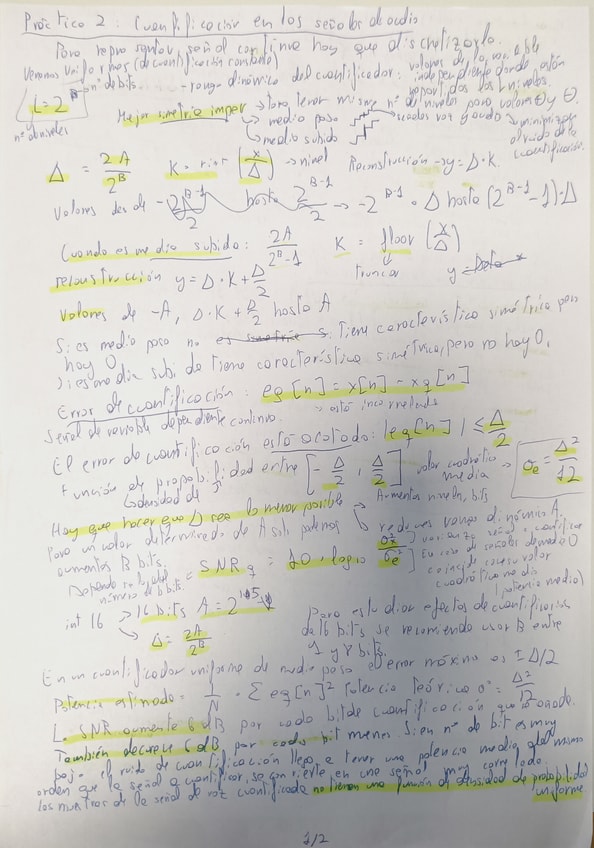 Práctica 2: Cuantificación en las señales de audio
Para representar señal continua hay que discretizarla.
Veremos uniformes (de cuantificación constante)
valores de la variable
independiente donde están
repartidos los niveles.
L = 2^B → nº de bits.
nº de niveles
→ rango dinámico del cuantificador:
Mejor simetría impar → para tener mismo nº de niveles para valores ⊕ y ⊖.
→ medio paso
→ media subida
usadas voz y audio → minimizar
el ruido de la
cuantificación.
Δ = 2A / 2^B K = (x/Δ) → nivel Reconstrucción → y = Δ·K.
Valores desde -2^B-1 / 2 hasta 2^B-1 / 2 → -2^B-1 · Δ hasta (2^B-1 - 1)·Δ
Cuando es media subida: 2A / 2^B-1 K = floor (x/Δ)
truncar
reconstrucción y = Δ·K + Δ/2
Valores de -A, Δ·K + Δ/2 hasta A
Si es medio paso no tiene característica simétrica pero
hay 0.
Si es media subida tiene característica simétrica, pero no hay 0.
Error de cuantificación: eq[n] = x[n] - xq[n]
Señal de variable dependiente continua.
El error de cuantificación está acotado: |eq[n]| ≤ Δ/2
Función de probabilidad entre [-Δ/2, Δ/2] valor cuadrático
media → σe² = Δ²/12
densidad de
Hay que hacer que Δ sea lo menor posible → Aumentar niveles, bits
→ reducir rango dinámico A.
Para un valor determinado de A solo podemos
aumentar B bits.
SNRq = 10·log10 σx²/σe²
varianza señal a cuantificar
En caso de señales de media 0
coincide con su valor
cuadrático medio
(potencia media)
número de bits
int 16 → 16 bits A = 2^15
→ Δ = 2A / 2^B
Para estudiar efectos de cuantificación
de 16 bits se recomienda usar B entre
1 y 8 bits.
En un cuantificador uniforme de medio paso el error máximo es ±Δ/2
Potencia estimada = 1/N · Σ eq[n]² Potencia Teórica σ² = Δ²/12
La SNR aumenta 6 dB por cada bit de cuantificación que se añade.
También decrece 6 dB por cada bit menos. Si en nº de bit es muy
bajo, el ruido de cuantificación llega a tener una potencia media del mismo
orden que la señal a cuantificar, se convierte en una señal muy correlada.
las muestras de la señal de voz cuantificada no tienen una función de densidad de probabilidad
uniforme
1/2